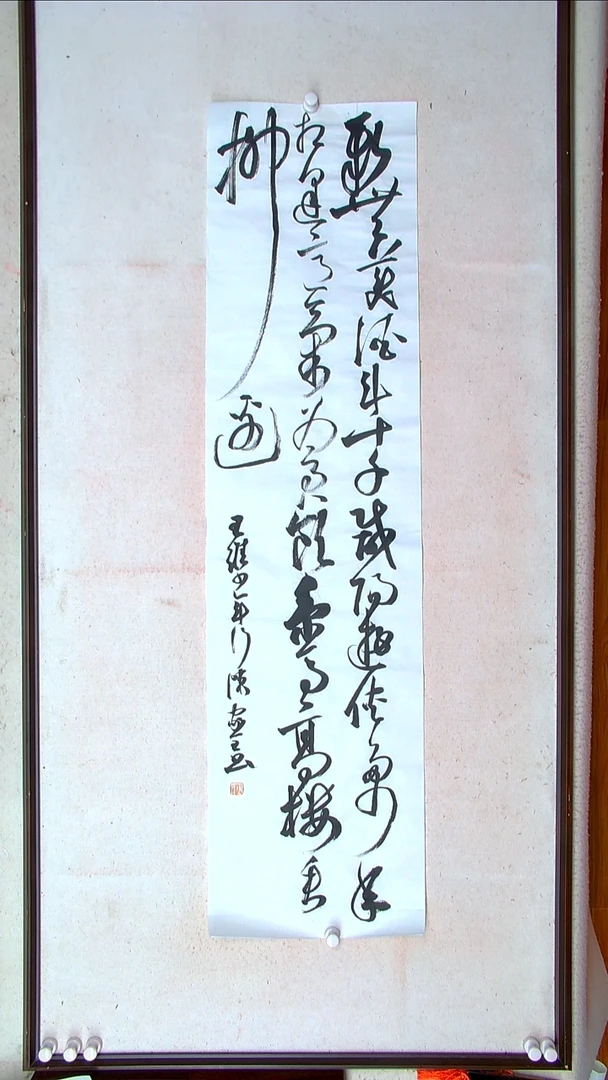 新豐美酒斗十千咸陽遊俠多少年
相逢意氣為君飲系馬高樓垂
柳邊
王維少年行